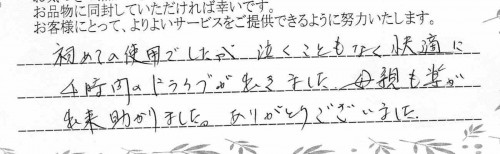 お品物に同封していただければ幸いです。
お客様にとって、よりよいサービスをご提供できるように努力いたします。
初めての使用でしたが 泣くこともなく快適に
4時間のドライブが出きました 母親も楽が
出来助かりました。ありがとうございました。